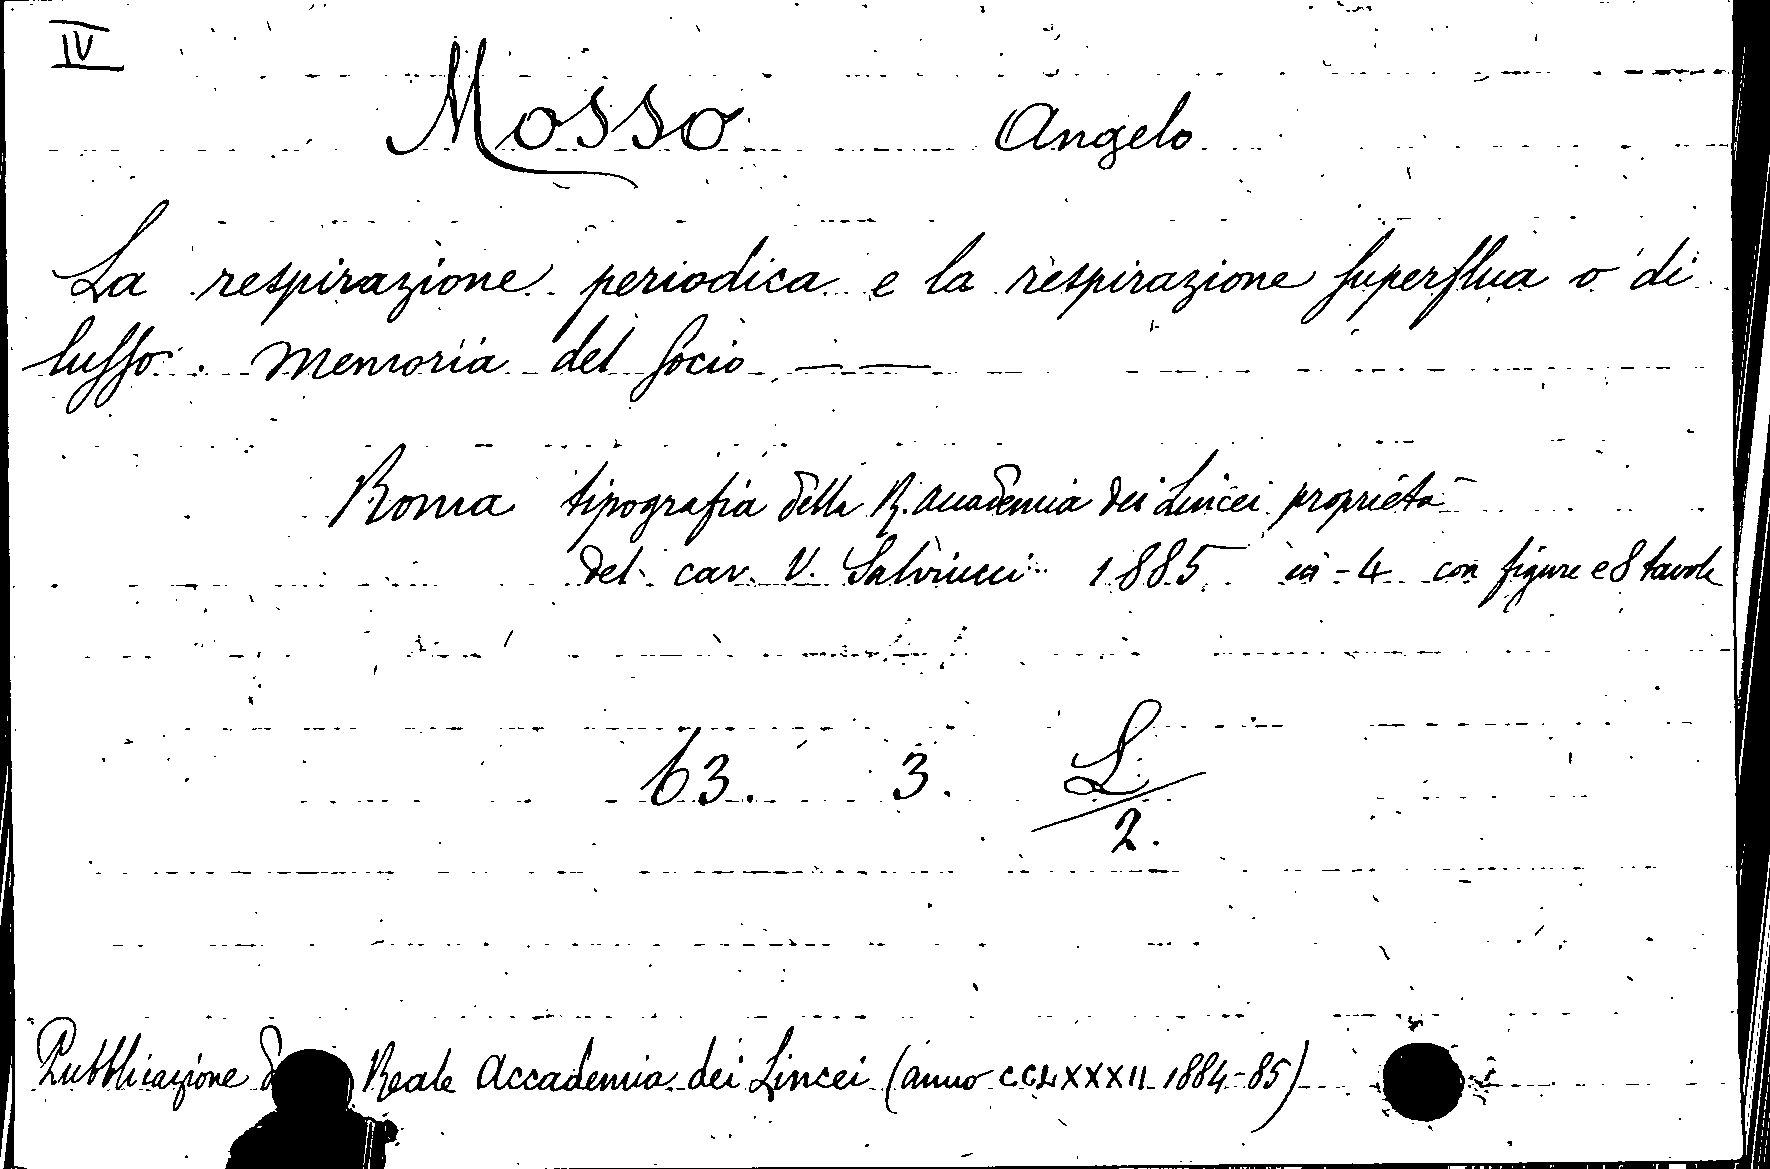 IV
Mosso Angelo
La respirazione periodica e la respirazione superflua o di
lusso. Memoria del socio — —
Roma tipografia della R. Accademia dei Lincei proprietà
del cav. V. Salviucci 1885 in-4 con figure e 8 tavole
63. 3. L/2.
Pubblicazione Reale Accademia dei Lincei (anno CCLXXXII 1884-85)